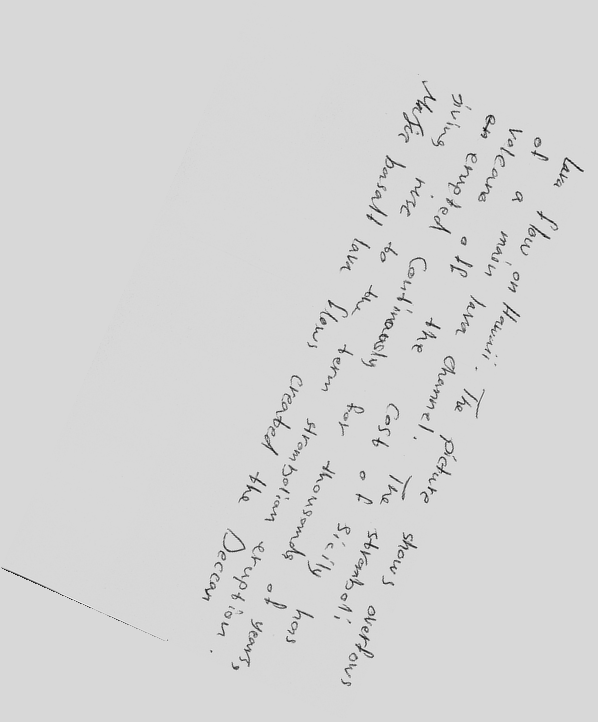 Lava flow on Hawaii. The picture shows overflows
of a main lava channel. The stromboli
volcano off the cost of Sicily has
erupted Continuously for thousands of years,
giving rise to the term strombolian eruption.
Mafic basalt lava flows created the Deccan